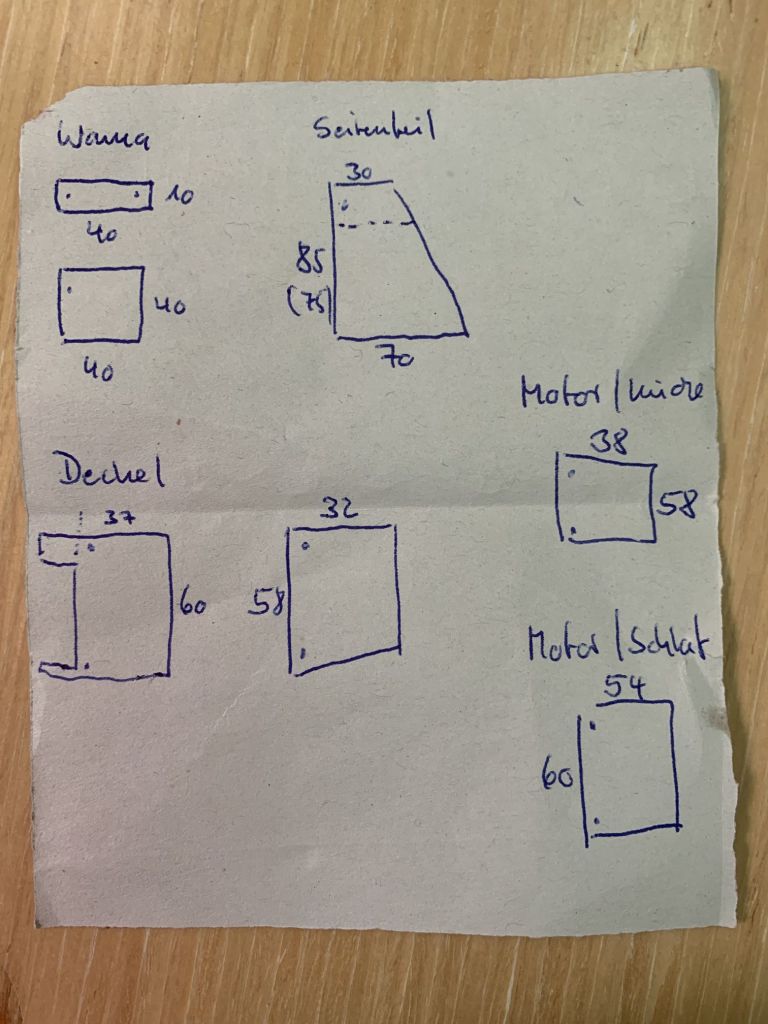 Wanna
10
40
40
40
Seitenteil
30
85
(75)
70
Motor/
38
58
Deckel
37
60
32
58
Motor/Schlaf
54
60